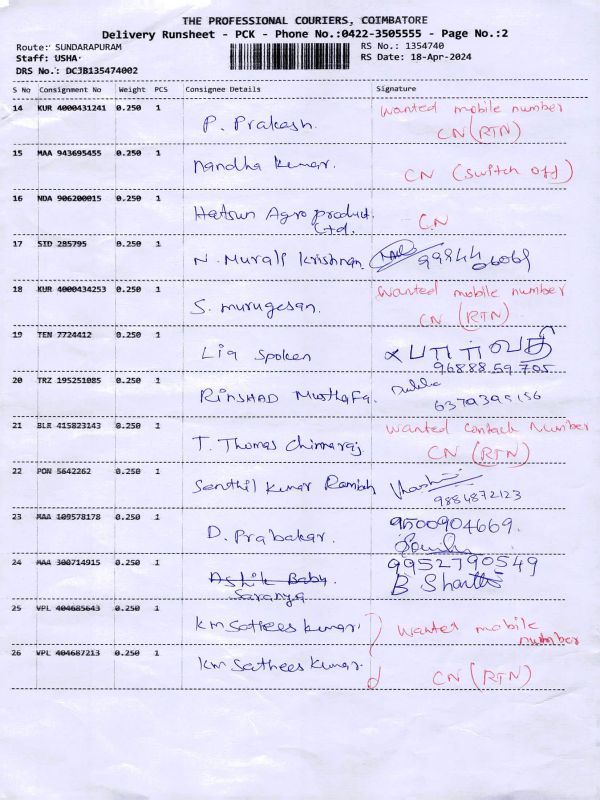 THE PROFESSIONAL COURIERS, COIMBATORE
Delivery Runsheet - PCK - Phone No.:0422-3505555 - Page No.:2
Route: SUNDARAPURAM RS No.: 1354740
Staff: USHA RS Date: 18-Apr-2024
DRS No.: DCJB135474002
S No Consignment No Weight PCS Consignee Details Signature
14 KUR 4000431241 0.250 1 P. Prakash. Wanted mobile number
CN (RTN)
15 MAA 943695455 0.250 1 nandha kumar. CN (switch off)
16 NDA 906200015 0.250 1 Hatsun Agro product. CN
Ltd.
17 SID 285795 0.250 1 N. Murali krishnan 99844 06069
18 KUR 4000434253 0.250 1 S. murugesan. Wanted mobile number
CN (RTN)
19 TEN 7724412 0.250 1 Lia spoken
96888 59 705
20 TRZ 195251085 0.250 1 RINSHAD Musthafa. 6379395156
21 BLR 415823143 0.250 1 T. Thomas chinnaraj Wanted contact Number
CN (RTN)
22 PON 5642262 0.250 1 Senthil kumar
9884872123
23 MAA 109578178 0.250 1 D. Prabakar. 9500904669.
24 MAA 300714915 0.250 1 Ashik Baby. 9952790549
Saranya B
25 VPL 404685643 0.250 1 km sathees kumar. wanted mobile
number
26 VPL 404687213 0.250 1 km sathees kumar. CN (RTN)